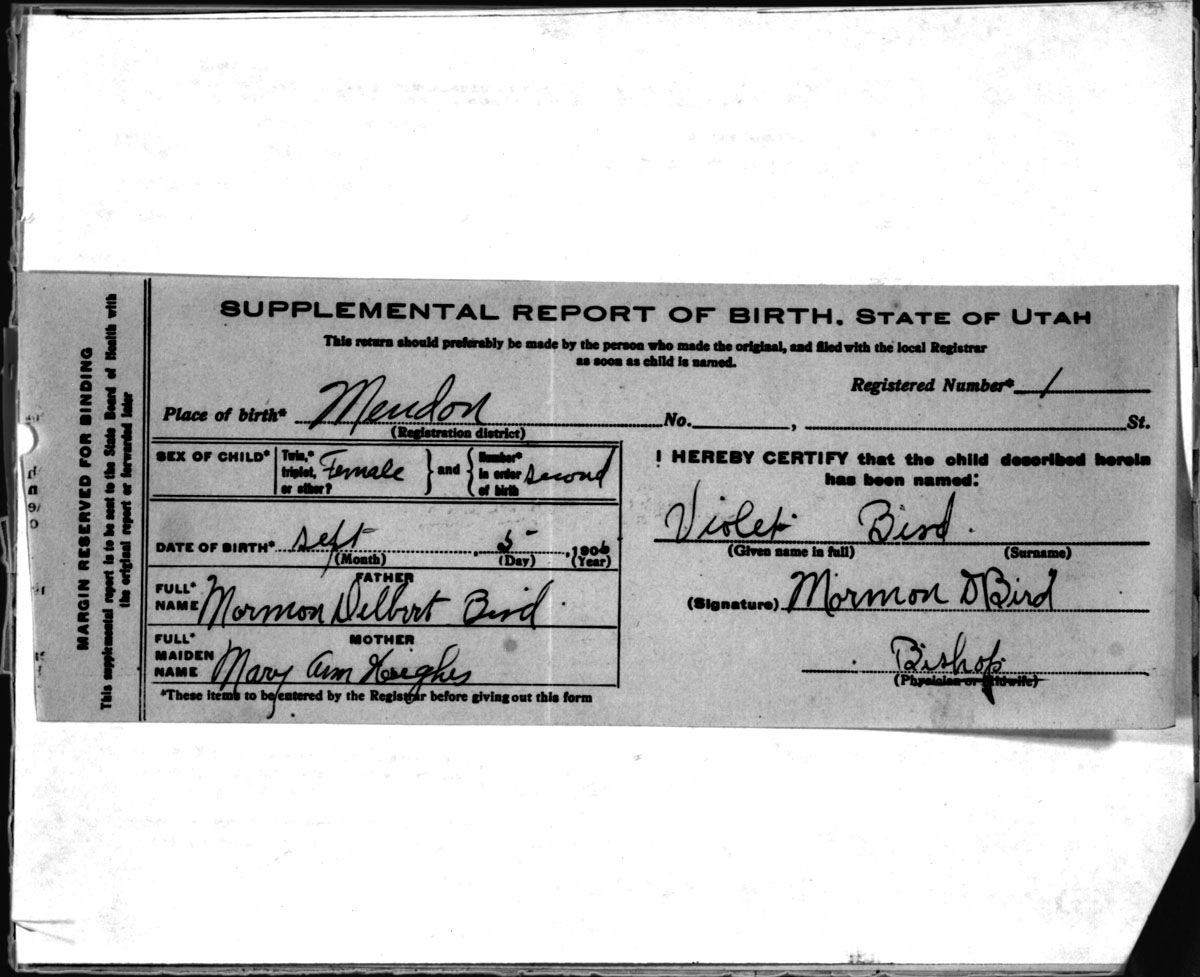 SUPPLEMENTAL REPORT OF BIRTH. STATE OF UTAH
This return should preferably be made by the person who made the original, and filed with the local Registrar
as soon as child is named.
Registered Number* 1
Place of birth* Mendon No. , St.
(Registration district)
SEX OF CHILD* Twin,* triplet, or other? Female and Number* in order of birth second
DATE OF BIRTH* Sept 5 1906
(Month) (Day) (Year)
FATHER
FULL* NAME Mormon Delbert Bird
MOTHER
FULL* MAIDEN NAME Mary Ann Hughes
*These items to be entered by the Registrar before giving out this form
I HEREBY CERTIFY that the child described herein
has been named:
Violet Bird.
(Given name in full) (Surname)
(Signature) Mormon D Bird
Bishop
(Physician or Midwife)
MARGIN RESERVED FOR BINDING
This supplemental report to be sent to the State Board of Health with
the original report or forwarded later